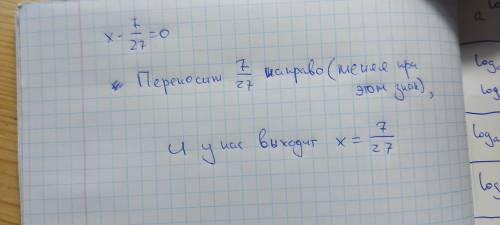 x - 7/27 = 0
Переносим 7/27 направо (меняя при
этом знак),
И у нас выходит x = 7/27
a log
loga
log
loga
log